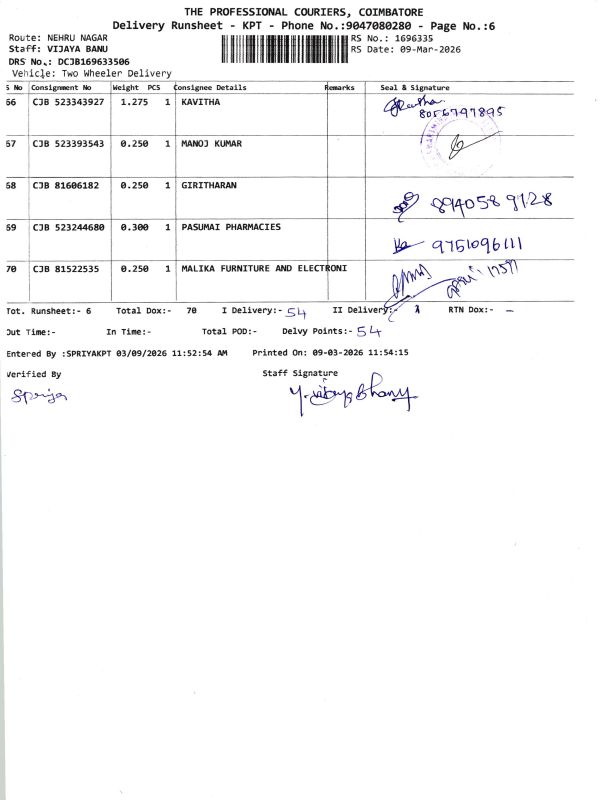 THE PROFESSIONAL COURIERS, COIMBATORE
Delivery Runsheet - KPT - Phone No.:9047080280 - Page No.:6
Route: NEHRU NAGAR RS No.: 1696335
Staff: VIJAYA BANU RS Date: 09-Mar-2026
DRS No.: DCJB169633506
Vehicle: Two Wheeler Delivery
S No Consignment No Weight PCS Consignee Details Remarks Seal & Signature
66 CJB 523343927 1.275 1 KAVITHA
8056797895
67 CJB 523393543 0.250 1 MANOJ KUMAR
68 CJB 81606182 0.250 1 GIRITHARAN
8940589128
69 CJB 523244680 0.300 1 PASUMAI PHARMACIES
9751096111
70 CJB 81522535 0.250 1 MALIKA FURNITURE AND ELECTRONI
Tot. Runsheet:- 6 Total Dox:- 70 I Delivery:- 54 II Delivery:- RTN Dox:- –
Out Time:- In Time:- Total POD:- Delvy Points:- 54
Entered By :SPRIYAKPT 03/09/2026 11:52:54 AM Printed On: 09-03-2026 11:54:15
Verified By Staff Signature
Spriya Y. Vijaya Bhanu